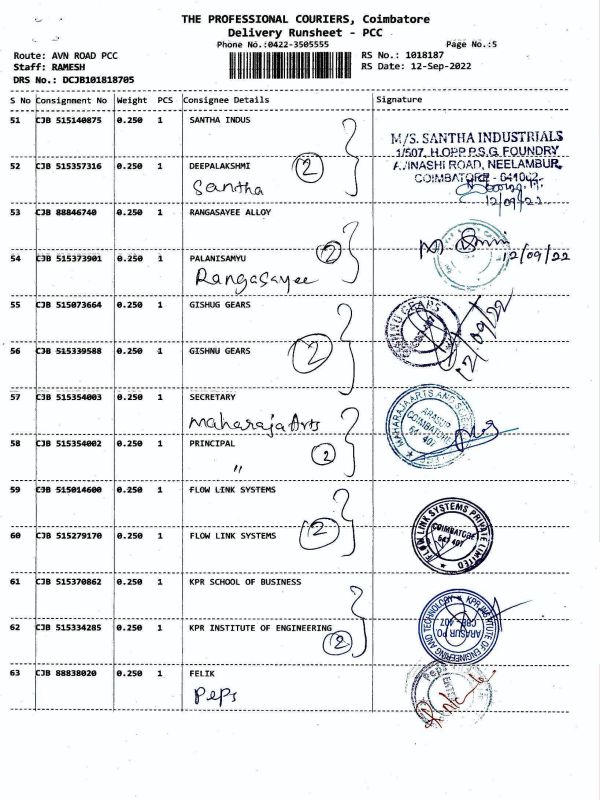 THE PROFESSIONAL COURIERS, Coimbatore
Delivery Runsheet - PCC
Phone No.:0422-3505555 Page No.:5
Route: AVN ROAD PCC RS No.: 1018187
Staff: RAMESH RS Date: 12-Sep-2022
DRS No.: DCJB101818705
S No Consignment No Weight PCS Consignee Details Signature
51 CJB 515140875 0.250 1 SANTHA INDUS
M/S. SANTHA INDUSTRIALS
1/507, H.OPP P.S.G. FOUNDRY
52 CJB 515357316 0.250 1 DEEPALAKSHMI 2 AVINASHI ROAD, NEELAMBUR,
Santha COIMBATORE - 641062
12/09/22
53 CJB 88846740 0.250 1 RANGASAYEE ALLOY
54 CJB 515373901 0.250 1 PALANISAMYU 2 12/09/22
Rangasayee
55 CJB 515073664 0.250 1 GISHUG GEARS
56 CJB 515339588 0.250 1 GISHNU GEARS 2 12/09/22
57 CJB 515354003 0.250 1 SECRETARY
Maharaja Arts
MAHARAJA ARTS AND
ARASUR
COIMBATORE
641 407
58 CJB 515354002 0.250 1 PRINCIPAL
" 2
59 CJB 515014600 0.250 1 FLOW LINK SYSTEMS
60 CJB 515279170 0.250 1 FLOW LINK SYSTEMS 2
FLOW LINK SYSTEMS PRIVATE LIMITED
COIMBATORE
641 407
61 CJB 515370862 0.250 1 KPR SCHOOL OF BUSINESS
62 CJB 515334285 0.250 1 KPR INSTITUTE OF ENGINEERING 2
KPR INSTITUTE OF ENGINEERING AND TECHNOLOGY
ARASUR PO
CBE-407
63 CJB 88838020 0.250 1 FELIK
Peps